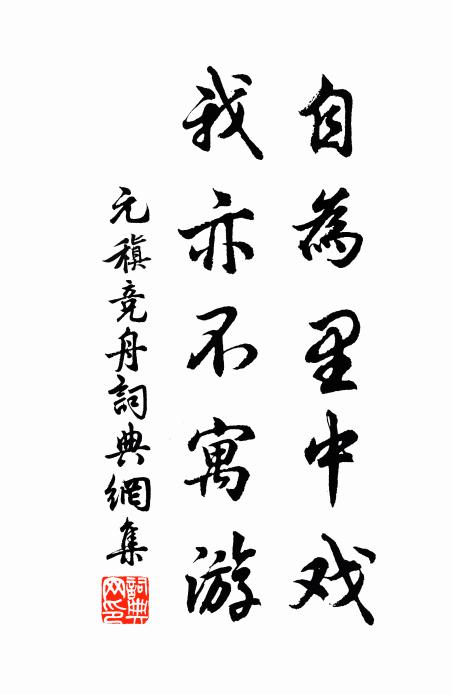 自為里中戏
我亦不寓游
元稹竞舟詞典網集
詞典網印